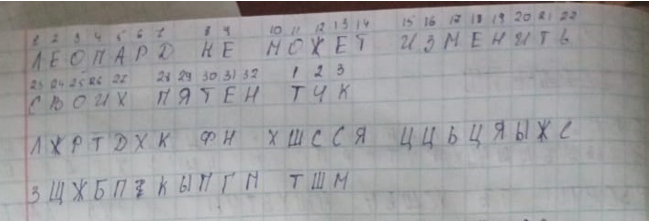 1 2 3 4 5 6 7 8 9 10 11 12 13 14 15 16 17 18 19 20 21 22
ЛЕОПАРД НЕ МОЖЕТ ИЗМЕНИТЬ
23 24 25 26 27 28 29 30 31 32 1 2 3
СВОИХ ПЯТЕН ТЧК
ЛЖРТДХК ФН ХШССЯ ЦЦЬЦЯЫЖС
ЗЩЖБП КЫПГП ТШМ